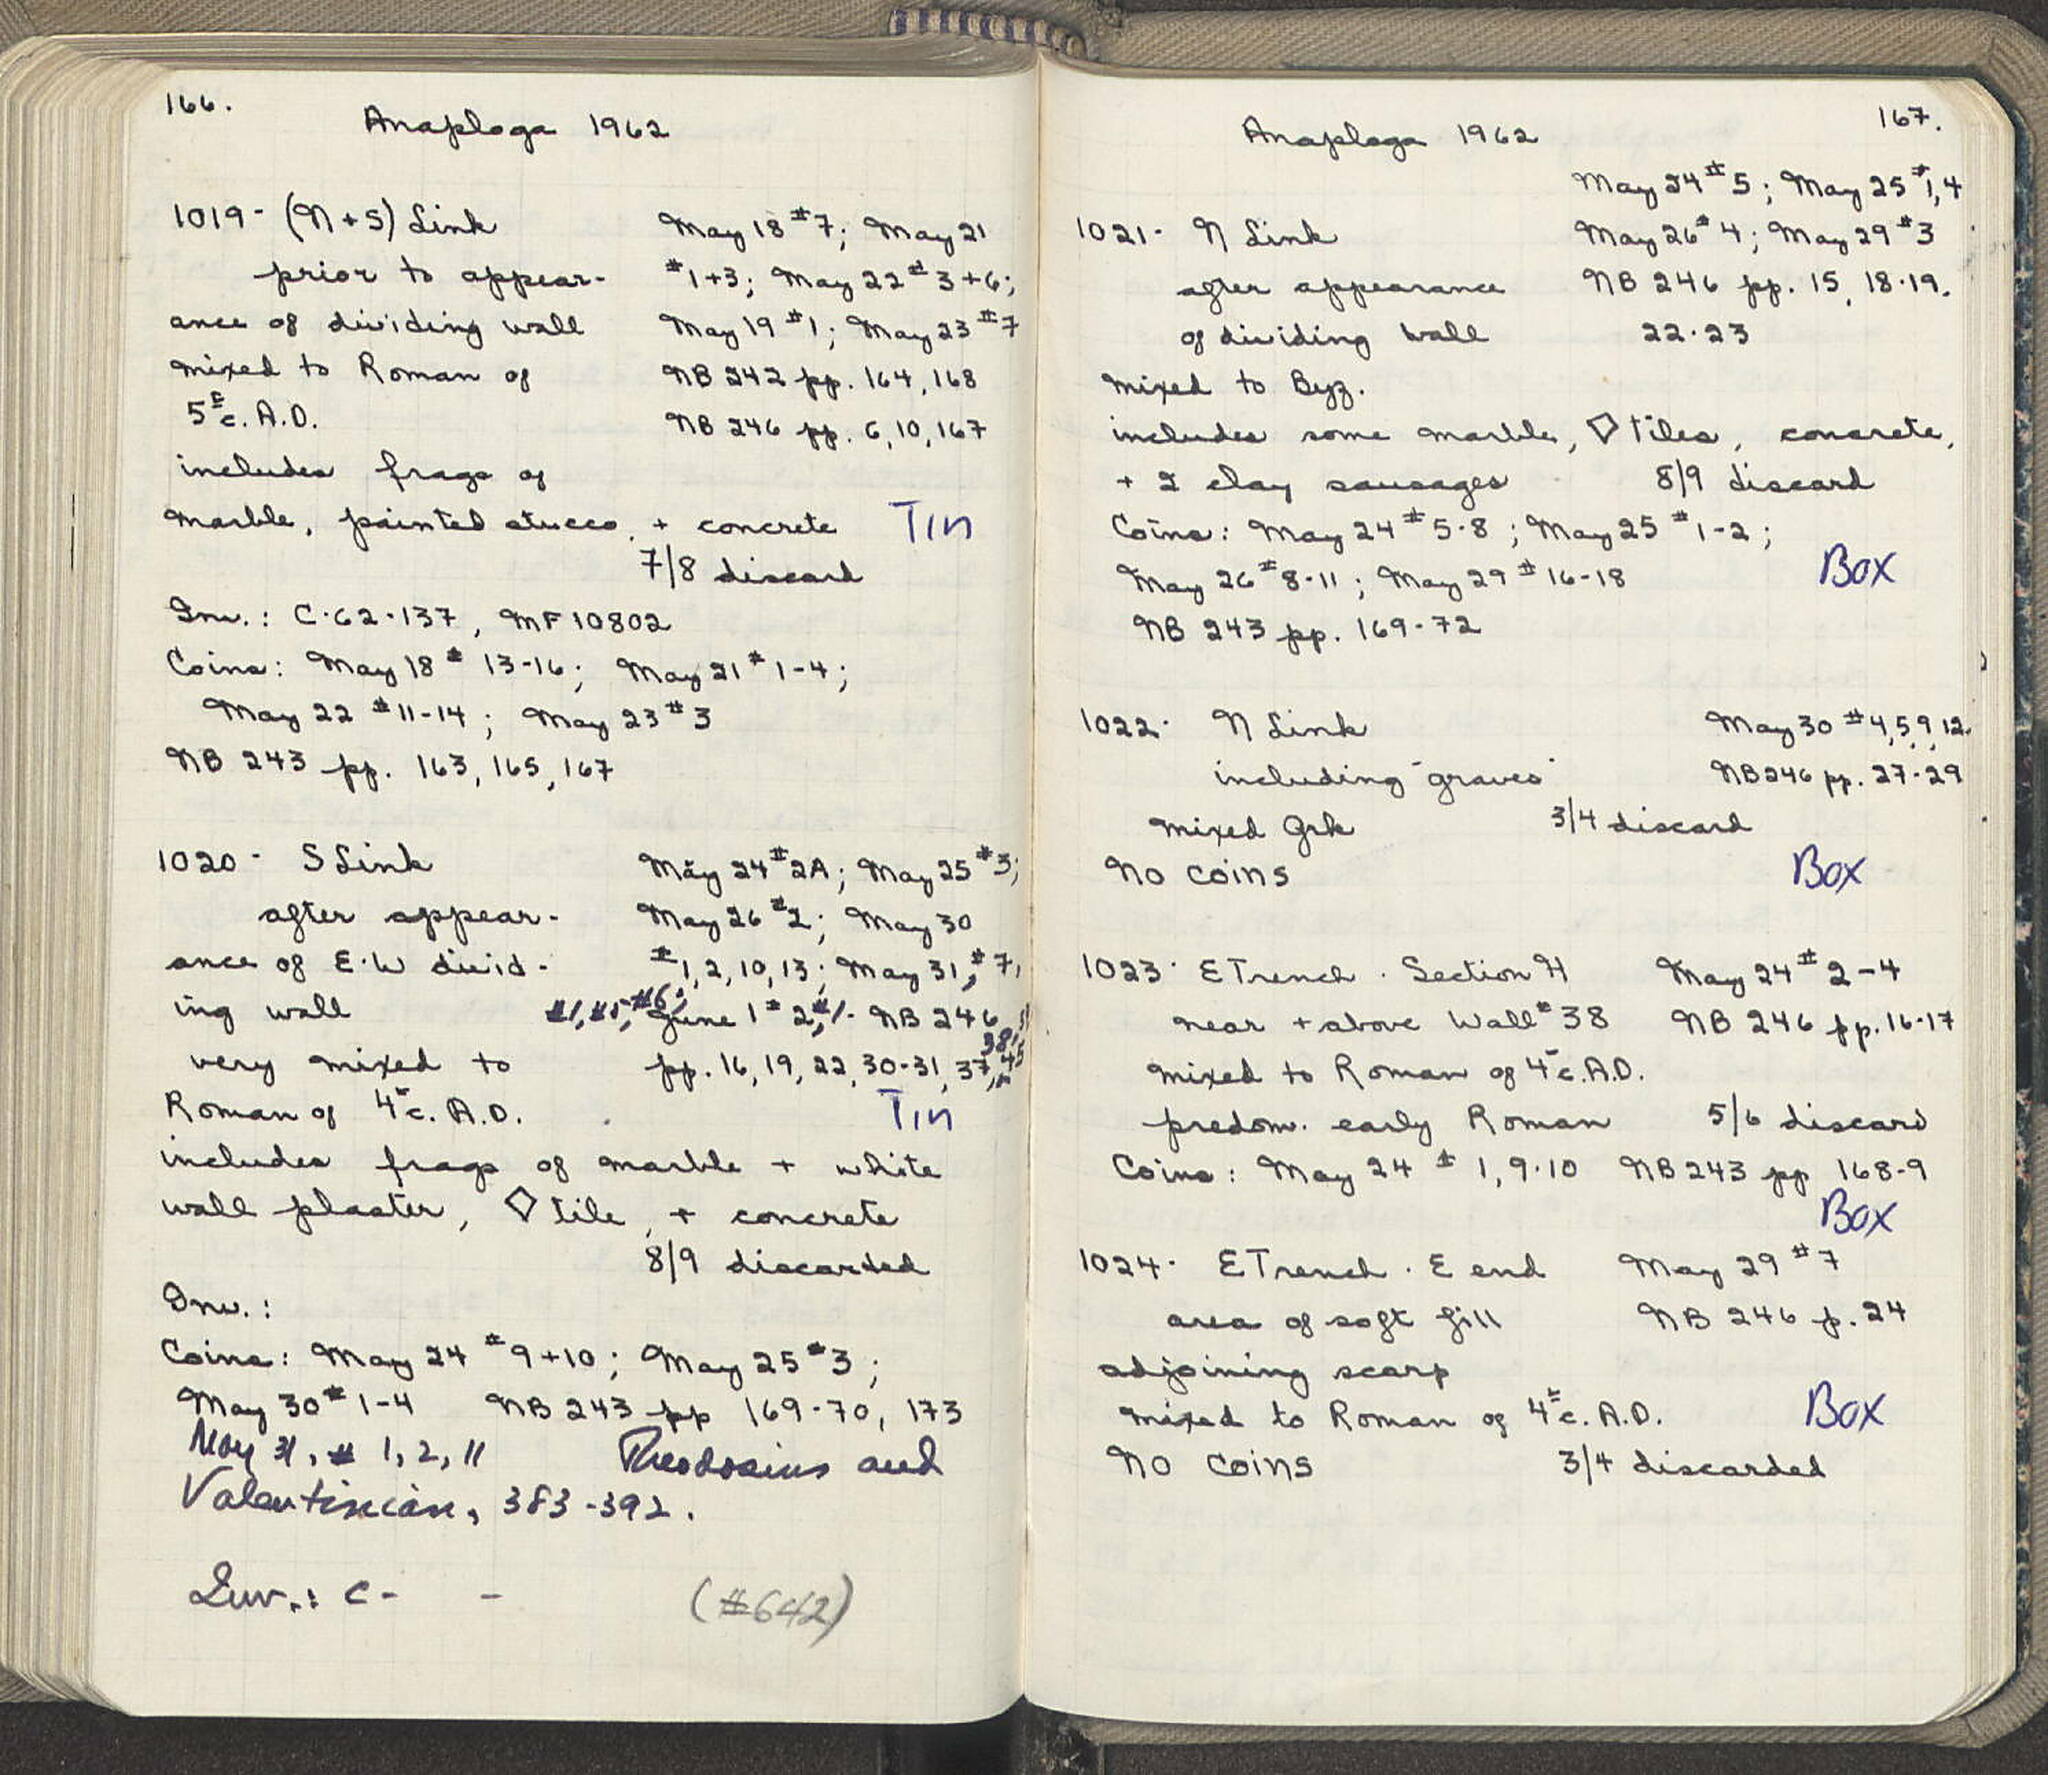 166.
Anaploga 1962
1019- (N+S) Link May 18 #7; May 21
prior to appear- #1+3; May 22 #3+6;
ance of dividing wall May 19 #1; May 23 #7
mixed to Roman of NB 242 pp. 164, 168
5th c. A.D. NB 246 pp. 6, 10, 167
includes frags of
marble, painted stucco, + concrete Tin
7/8 discard
Inv.: C-62-137, MF 10802
Coins: May 18 # 13-16; May 21 # 1-4;
May 22 #11-14; May 23 #3
NB 243 pp. 163, 165, 167
1020- S Link May 24 #2A; May 25 #3;
after appear- May 26 #2; May 30
ance of E-W divid- #1, 2, 10, 13; May 31, #7,
ing wall #1, #5, #6; June 1 #2, #1. NB 246
very mixed to pp. 16, 19, 22, 30-31, 37, 38,
Roman of 4th c. A.D. Tin
includes frags of marble + white
wall plaster, ◇ tile, + concrete
8/9 discarded
Inv.:
Coins: May 24 #9+10; May 25 #3;
May 30 #1-4 NB 243 pp 169-70, 173
May 31, # 1, 2, 11 Theodosius and
Valentinian, 383-392.
Inv.: C- -
(#642)
167.
Anaploga 1962
May 24 #5; May 25 #1,4
1021- N Link May 26 #4; May 29 #3
after appearance NB 246 pp. 15, 18-19,
of dividing wall 22-23
mixed to Byz.
includes some marble, ◇ tiles, concrete,
+ 2 clay sausages 8/9 discard
Coins: May 24 #5-8; May 25 #1-2;
May 26 #8-11; May 29 #16-18 Box
NB 243 pp. 169-72
1022- N Link May 30 #4,5,9,12.
including "graves" NB 246 pp. 27-29
mixed Grk 3/4 discard
No coins Box
1023- E Trench. Section H May 24 #2-4
near + above Wall #38 NB 246 pp. 16-17
mixed to Roman of 4th c. A.D.
predom. early Roman 5/6 discard
Coins: May 24 # 1, 9-10 NB 243 pp 168-9
Box
1024- E Trench. E end May 29 #7
area of soft fill NB 246 p. 24
adjoining scarp
mixed to Roman of 4th c. A.D. Box
No coins 3/4 discarded